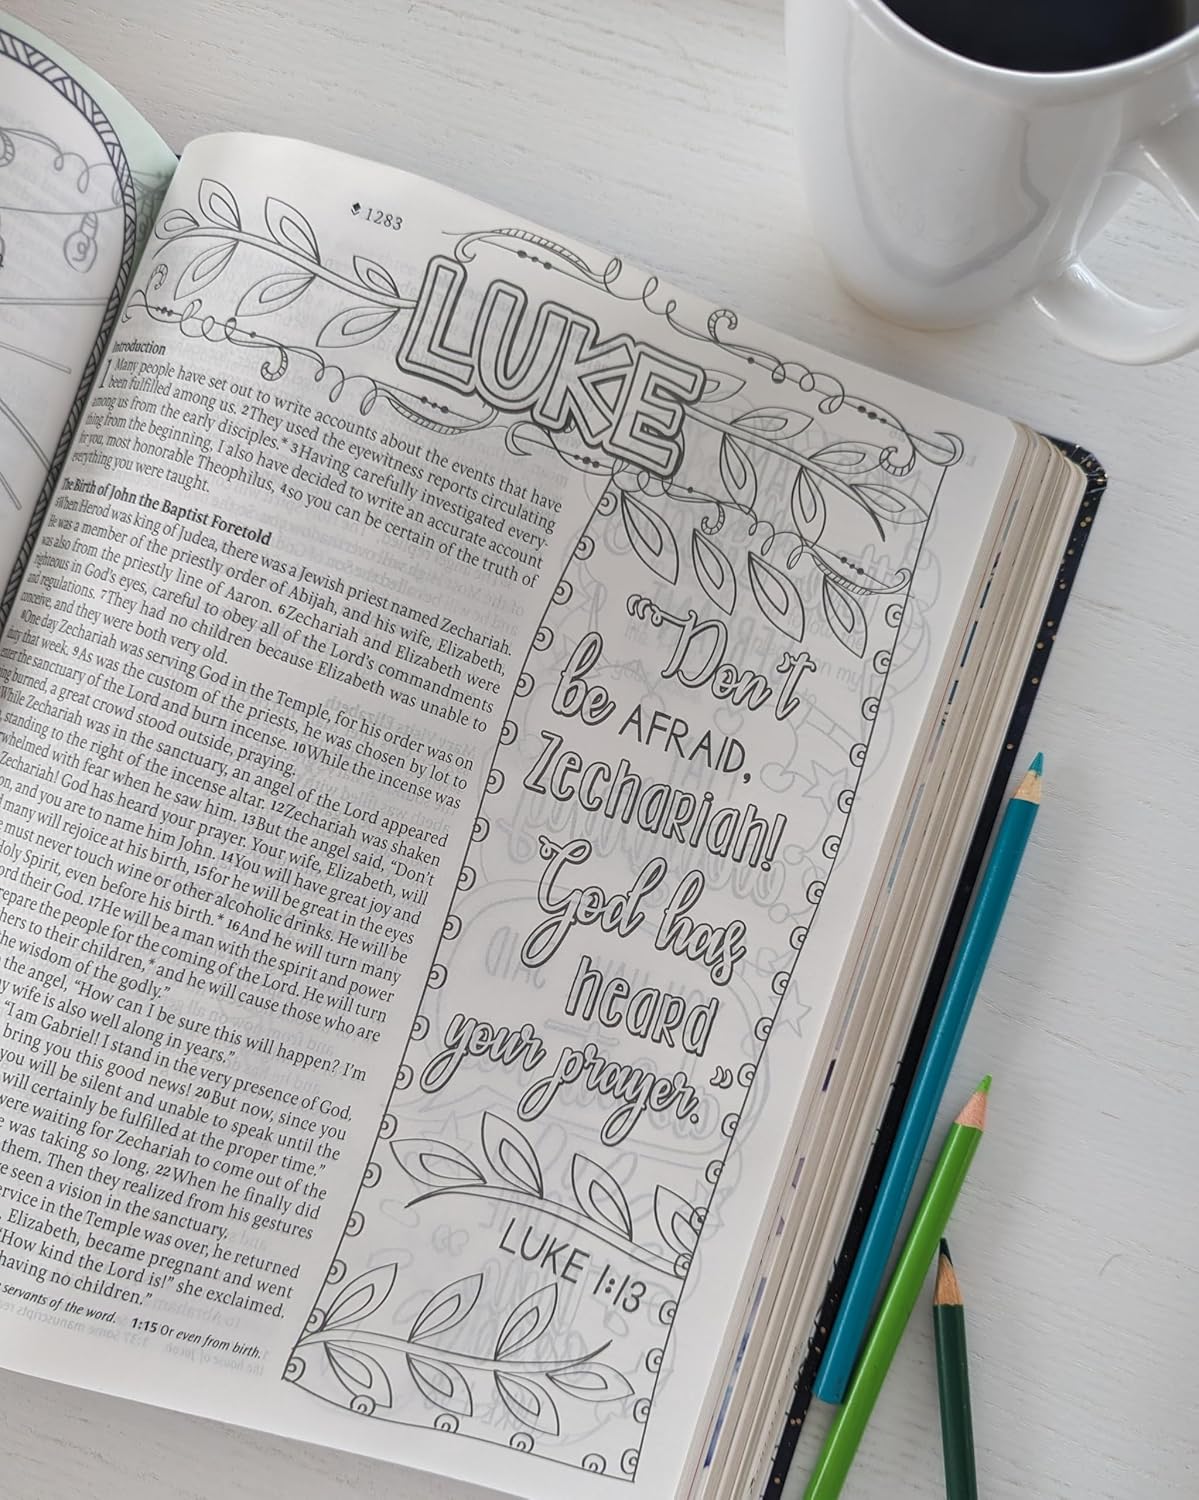 1283
LUKE
Introduction
1 Many people have set out to write accounts about the events that have
been fulfilled among us. 2They used the eyewitness reports circulating
among us from the early disciples.* 3Having carefully investigated every-
thing from the beginning, I also have decided to write an accurate account
for you, most honorable Theophilus, 4so you can be certain of the truth of
everything you were taught.
The Birth of John the Baptist Foretold
5When Herod was king of Judea, there was a Jewish priest named Zechariah.
He was a member of the priestly order of Abijah, and his wife, Elizabeth,
was also from the priestly line of Aaron. 6Zechariah and Elizabeth were
righteous in God's eyes, careful to obey all of the Lord's commandments
and regulations. 7They had no children because Elizabeth was unable to
conceive, and they were both very old.
8One day Zechariah was serving God in the Temple, for his order was on
duty that week. 9As was the custom of the priests, he was chosen by lot to
enter the sanctuary of the Lord and burn incense. 10While the incense was
burned, a great crowd stood outside, praying.
While Zechariah was in the sanctuary, an angel of the Lord appeared
standing to the right of the incense altar. 12Zechariah was shaken
with fear when he saw him. 13But the angel said, "Don't
Zechariah! God has heard your prayer. Your wife, Elizabeth, will
and you are to name him John. 14You will have great joy and
many will rejoice at his birth, 15for he will be great in the eyes
must never touch wine or other alcoholic drinks. He will be
Holy Spirit, even before his birth.* 16And he will turn many
their God. 17He will be a man with the spirit and power
the people for the coming of the Lord. He will turn
to their children,* and he will cause those who are
the wisdom of the godly."
the angel, "How can I be sure this will happen? I'm
wife is also well along in years."
"I am Gabriel! I stand in the very presence of God.
bring you this good news! 20But now, since you
you will be silent and unable to speak until the
will certainly be fulfilled at the proper time."
were waiting for Zechariah to come out of the
was taking so long. 22When he finally did
them. Then they realized from his gestures
seen a vision in the sanctuary.
in the Temple was over, he returned
Elizabeth, became pregnant and went
"How kind the Lord is!" she exclaimed.
having no children."
servants of the word. 1:15 Or even from birth.
"Don't
be AFRAID,
Zechariah!
God has
heard
your prayer."
LUKE 1:13